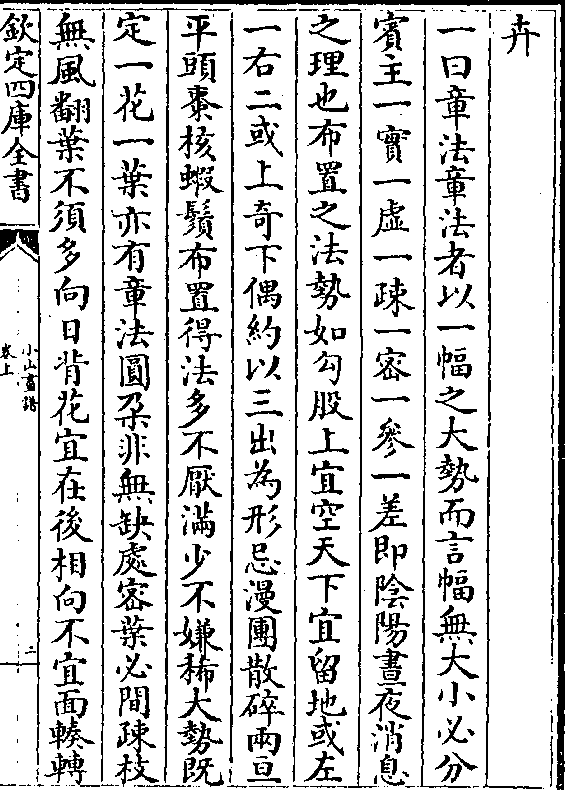 卉
一曰章法章法者以一幅之大勢而言幅無大小必分
賓主一實一虛一疎一密一參一差即陰陽晝夜消息
之理也布置之法勢如勾股上宜空天下宜留地或左
一右二或上奇下偶約以三出為形忌漫團散碎兩亘
平頭棗核蝦鬚布置得法多不厭滿少不嫌稀大勢既
定一花一葉亦有章法圓朶非無缺處密葉必間疎枝
無風翻葉不須多向日背花宜在後相向不宜面輳轉
欽定四庫全書
小山畫譜
卷上
二